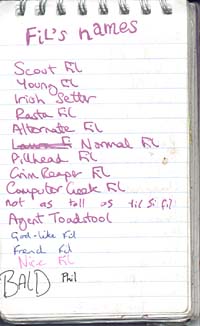 Fil's names
Scout Fil
Young Fil
Irish Setter
Rasta Fil
Alternate Fil
Normal Fil
Pillhead Fil
Grim Reaper Fil
Computer Geek Fil
not as tall as Fil
Agent Toadstool
God-like Fil
French Fil
Nice Fil
BALD Phil